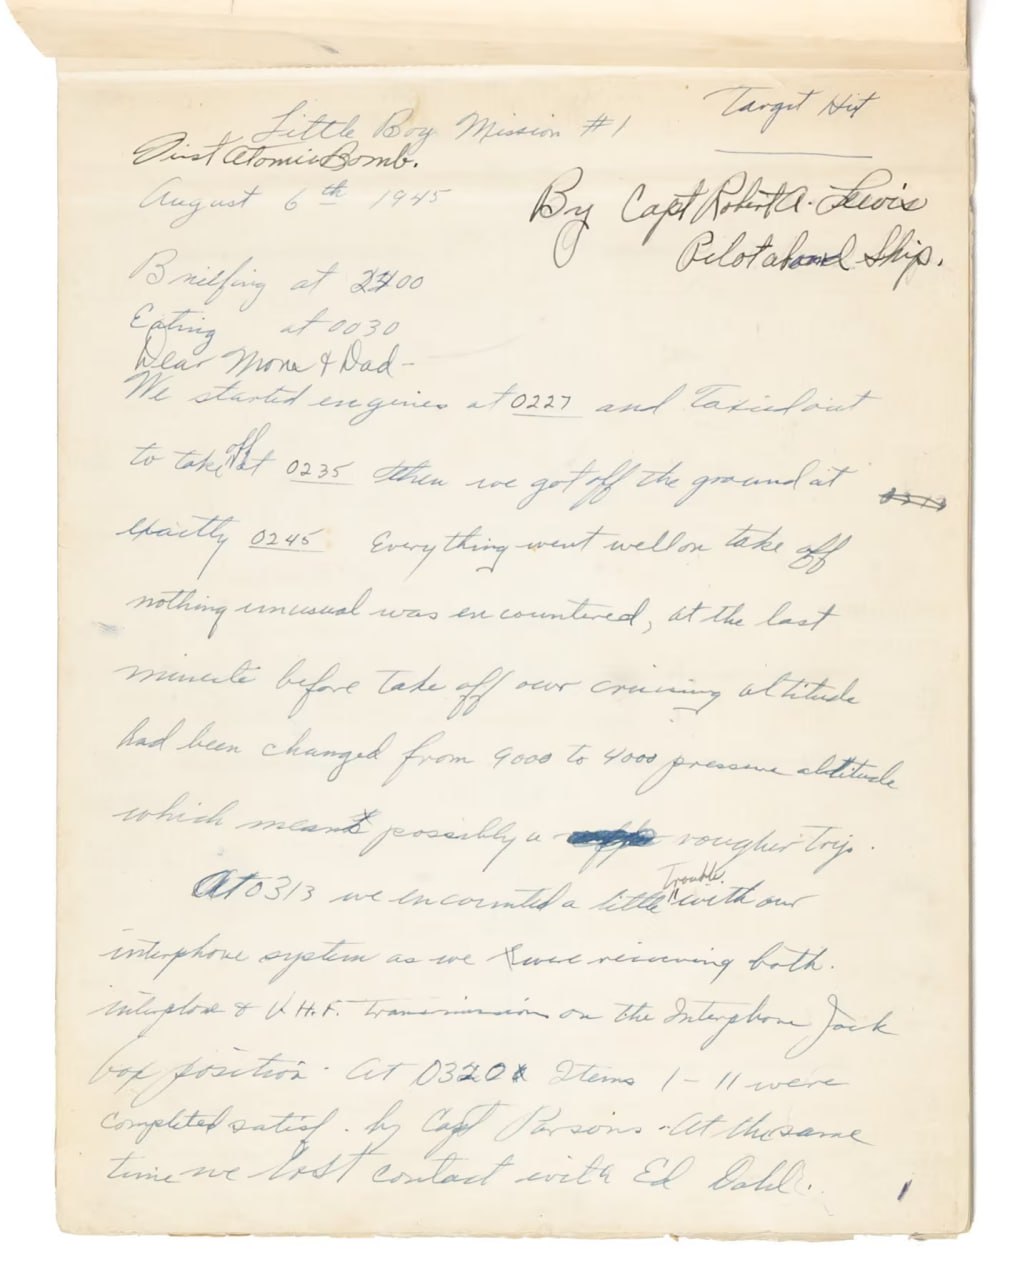 Target Hit
Little Boy Mission #1
First Atomic Bomb.
August 6th 1945
By Capt Robert A. Lewis
Pilot aboard Ship.
Briefing at 2400
Eating at 0030
Dear Mom & Dad-
We started engines at 0227 and Taxied out
to take off at 0235 then we got off the ground at
exactly 0245 Everything went well on take off
nothing unusual was encountered, at the last
minute before take off our cruising altitude
had been changed from 9000 to 4000 pressure altitude
which means possibly a rougher trip.
At 0313 we encounted a little Trouble. with our
interphone system as we were recieving both.
interphone & V.H.F. Transmissions on the Interphone Jack
box position. At 0320 Items 1-11 were
completed satisf. by Capt Parsons. At the same
time we lost contact with Ed Dahl.
1